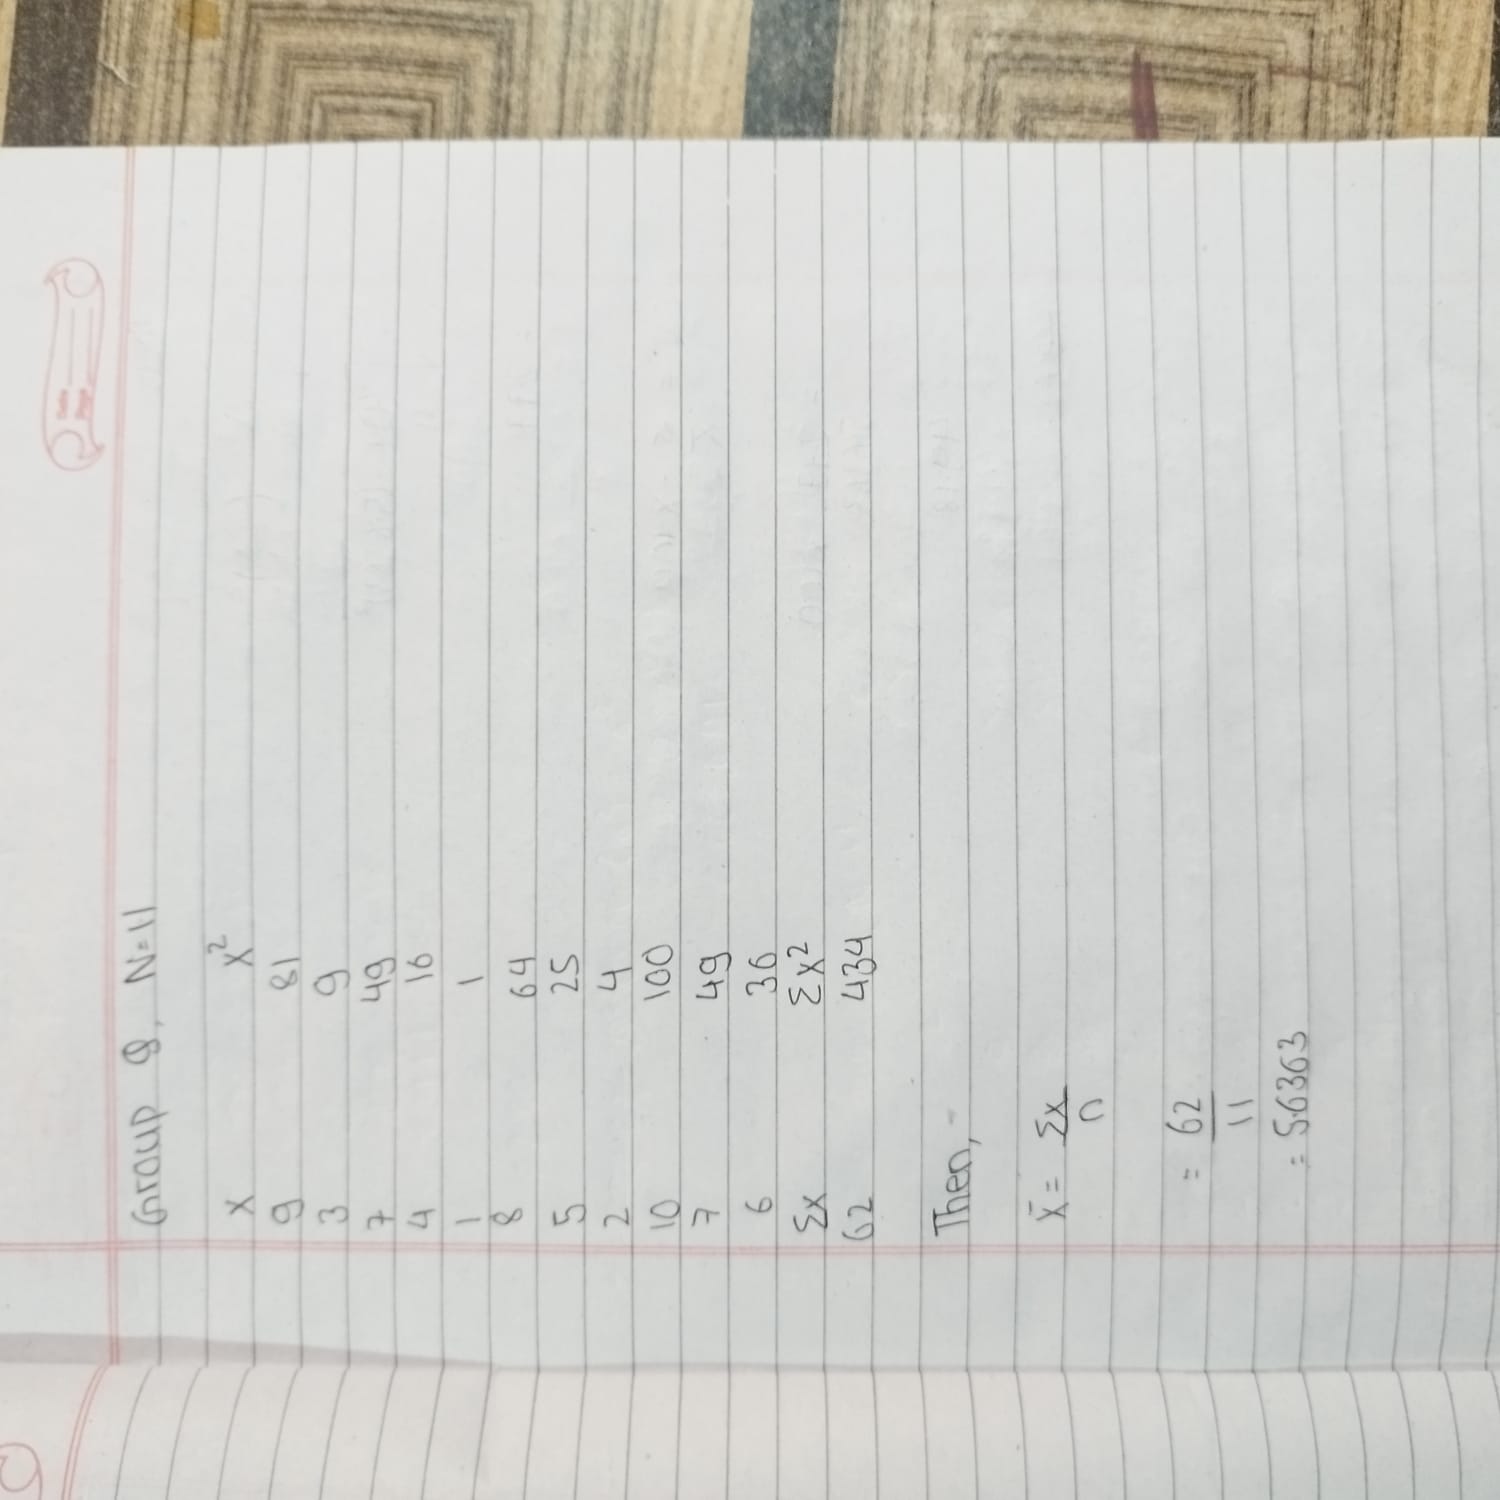 Date
Page
Group Q, N=11
x x²
9 81
3 9
7 49
4 16
1 1
8 64
5 25
2 4
10 100
7 49
6 36
Σx Σx²
62 434
Then,
x̄ = Σx
n
= 62
11
= 5.6363